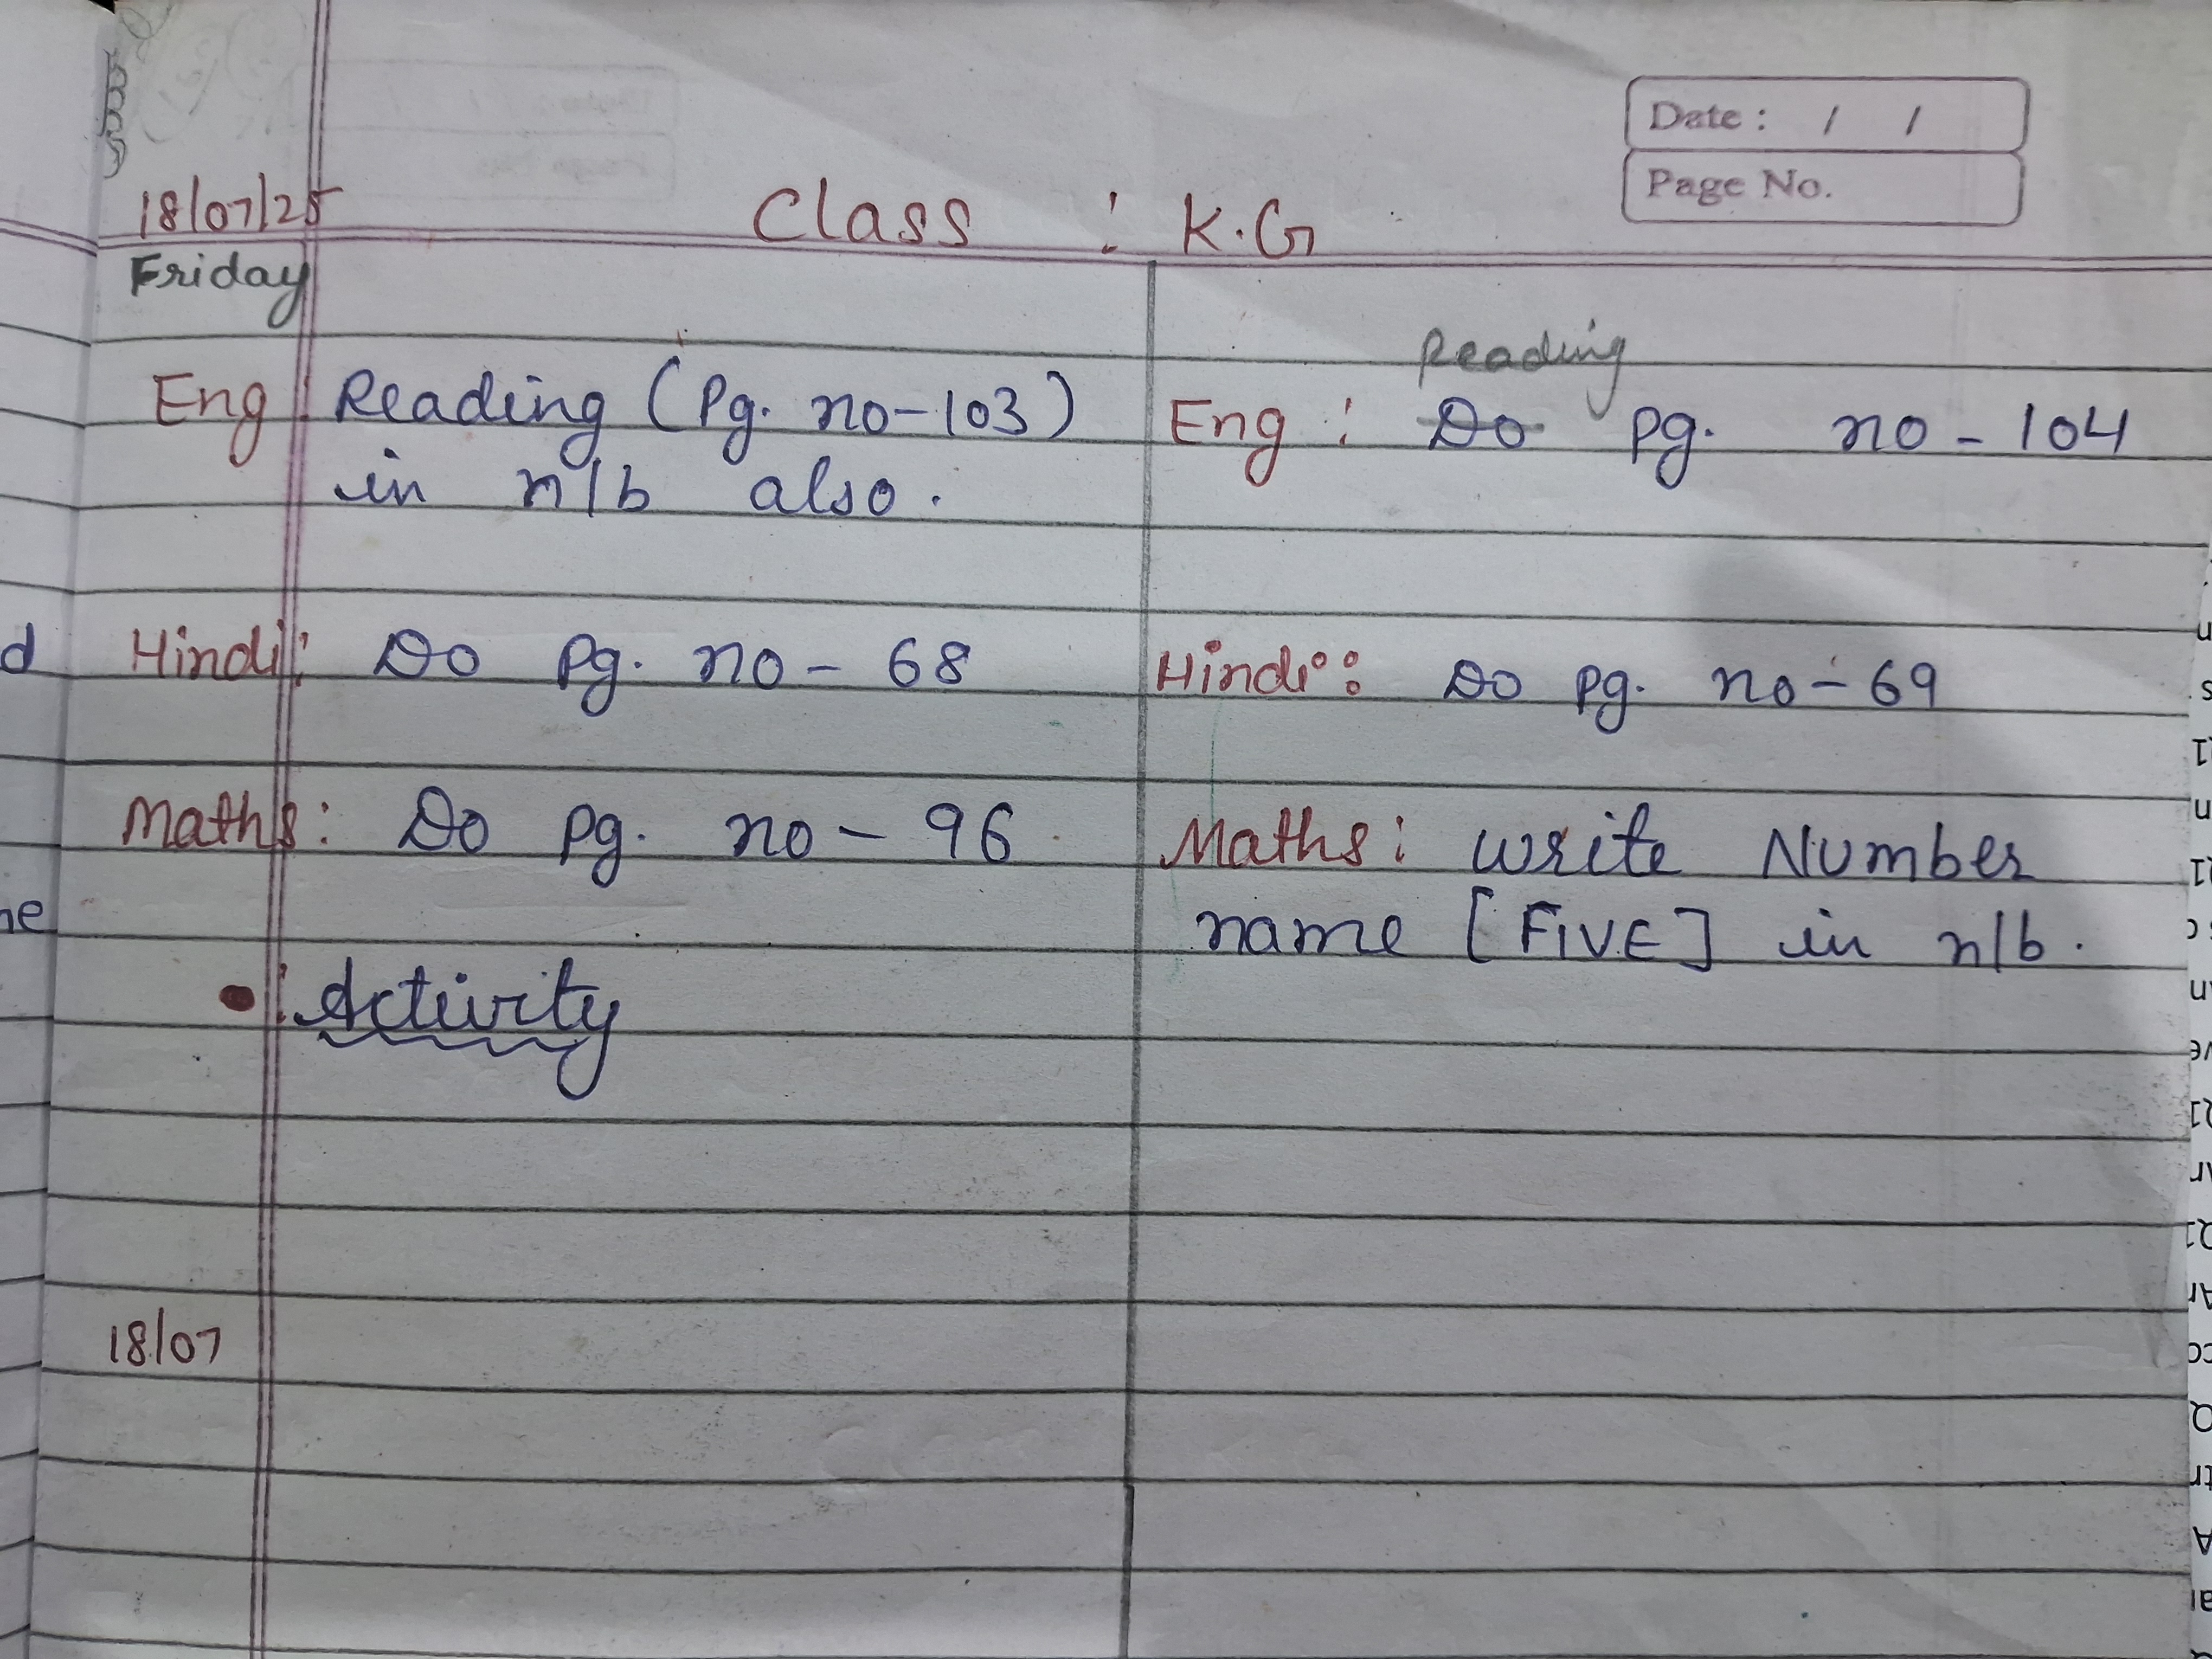 Date : / /
Page No.
18/07/25 Class : K.G
Friday
Eng : Reading (Pg. no-103)
in n/b also.
Hindi : Do Pg. no - 68
Maths : Do Pg. no - 96
: Activity
18/07
Reading
Eng : Do Pg. no - 104
Hindi : Do Pg. no - 69
Maths : Write Number
name [FIVE] in n/b.